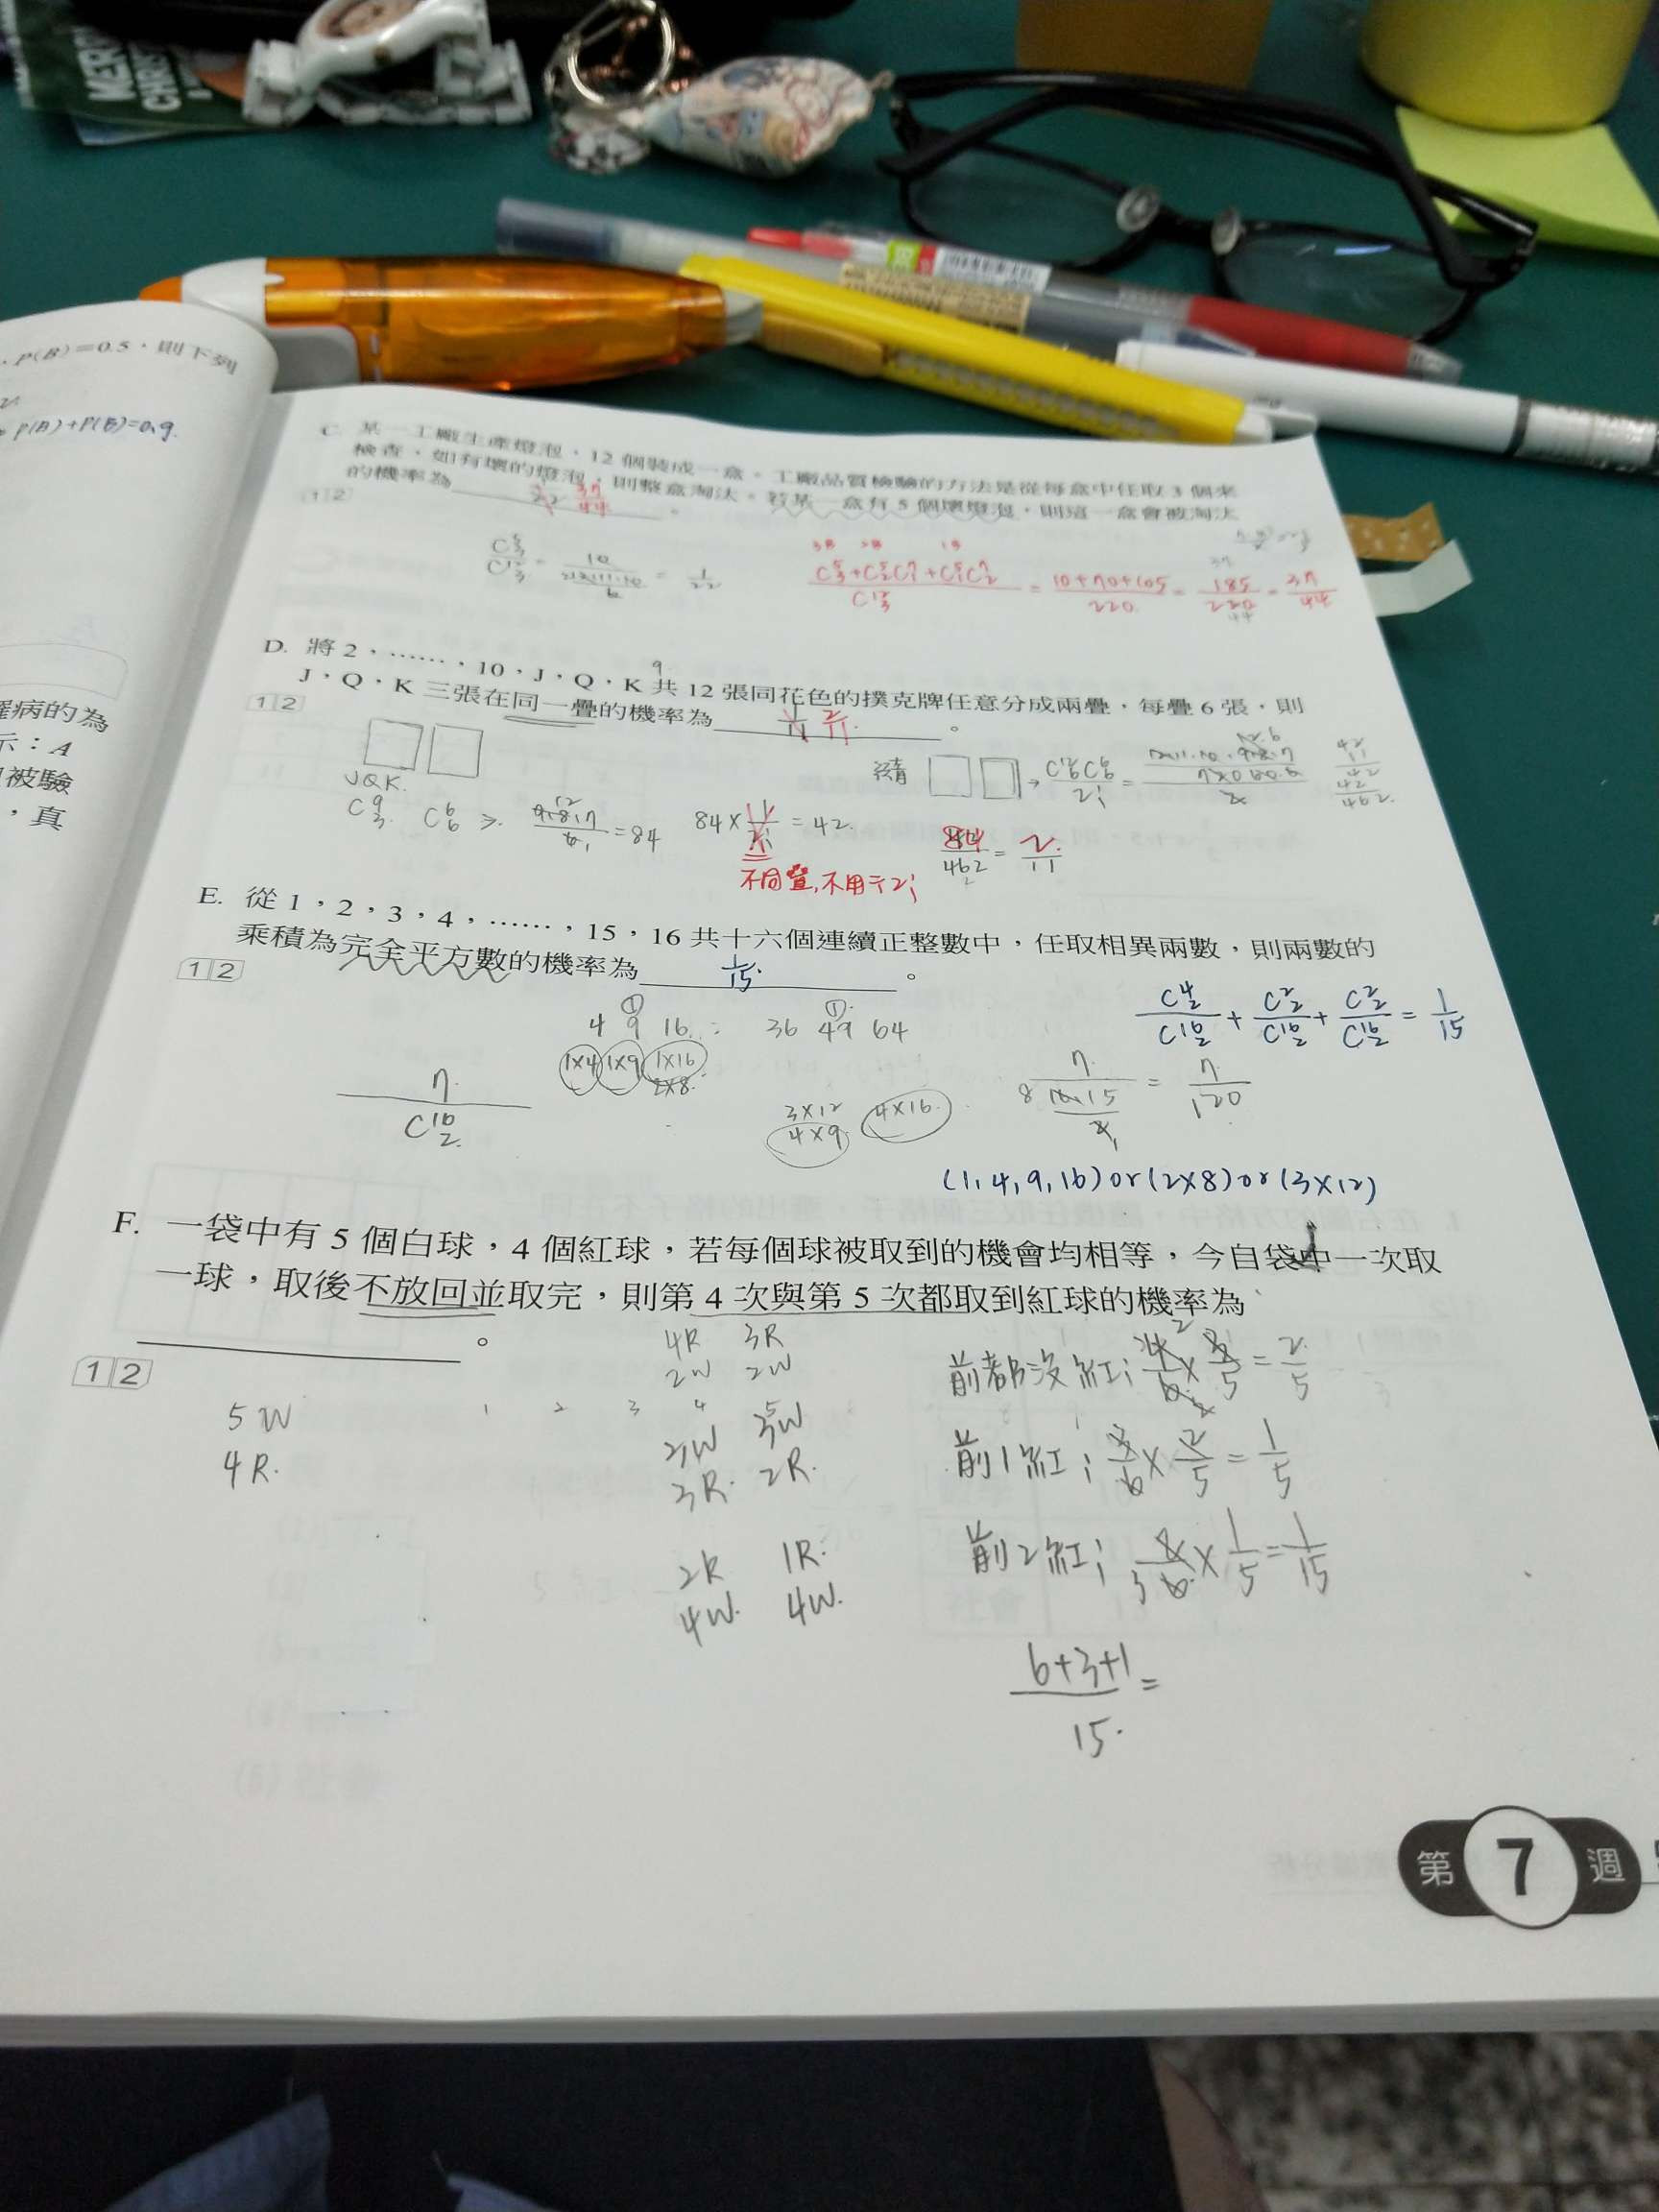 MERRY
CHRIST
P(B)=0.5，則下列
P(A)+P(B)=0.9.
罹病的為
示：A
被驗
，真
C. 某一工廠生產燈泡，12 個裝成一盒。工廠品質檢驗的方法是從每盒中任取 3 個來
檢查，如有壞的燈泡，則整盒淘汰。若某一盒有 5 個壞燈泡，則這一盒會被淘汰
的機率為 37/44 。
1 2
C^5_3/C^12_3 = 10/(12·11·10/6) = 1/22
(C^5_3+C^5_2C^7_1+C^5_1C^7_2)/C^12_3 = (10+70+105)/220 = 185/220 = 37/44
D. 將 2，……，10，J，Q，K 共 12 張同花色的撲克牌任意分成兩疊，每疊 6 張，則
9
J，Q，K 三張在同一疊的機率為 1/11 2/11 。
1 2
JQK
C^9_3 C^6_6 ⇒ 9·8·7/6 = 84
84×1/2! = 42
不同疊，不用÷2!
C^12_6C^6_6/2! =
84/462 = 2/11
42
11
42
42
462
E. 從 1，2，3，4，……，15，16 共十六個連續正整數中，任取相異兩數，則兩數的
乘積為完全平方數的機率為 1/15 。
1 2
C^4_2/C^16_2 + C^2_2/C^16_2 + C^2_2/C^16_2 = 1/15
4 9 16 36 49 64
1×4 1×9 1×16
2×8
3×12 4×16
4×9
7/C^16_2
7/(16·15/2) = 7/120
(1,4,9,16) or (2×8) or (3×12)
F. 一袋中有 5 個白球，4 個紅球，若每個球被取到的機會均相等，今自袋中一次取
一球，取後不放回並取完，則第 4 次與第 5 次都取到紅球的機率為
。
1 2
4R 3R
2W 2W
5W 1 2 3 4 5
4R.
2W 3W
3R. 2R.
2R 1R.
4W. 4W.
前都沒紅; 4/6 × 3/5 = 2/5
前1紅; 3/6 × 2/5 = 1/5
前2紅; 2/6 × 1/5 = 1/15
(6+3+1)/15 =
第 7 週